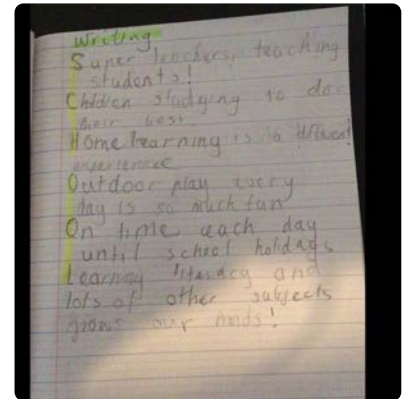 Writing
Super teachers, teaching
students!
Children studying to do
their best
Home learning is a different
experience
Outdoor play every
day is so much fun
On time each day
until school holidays
Learning literacy and
lots of other subjects
grows our minds!